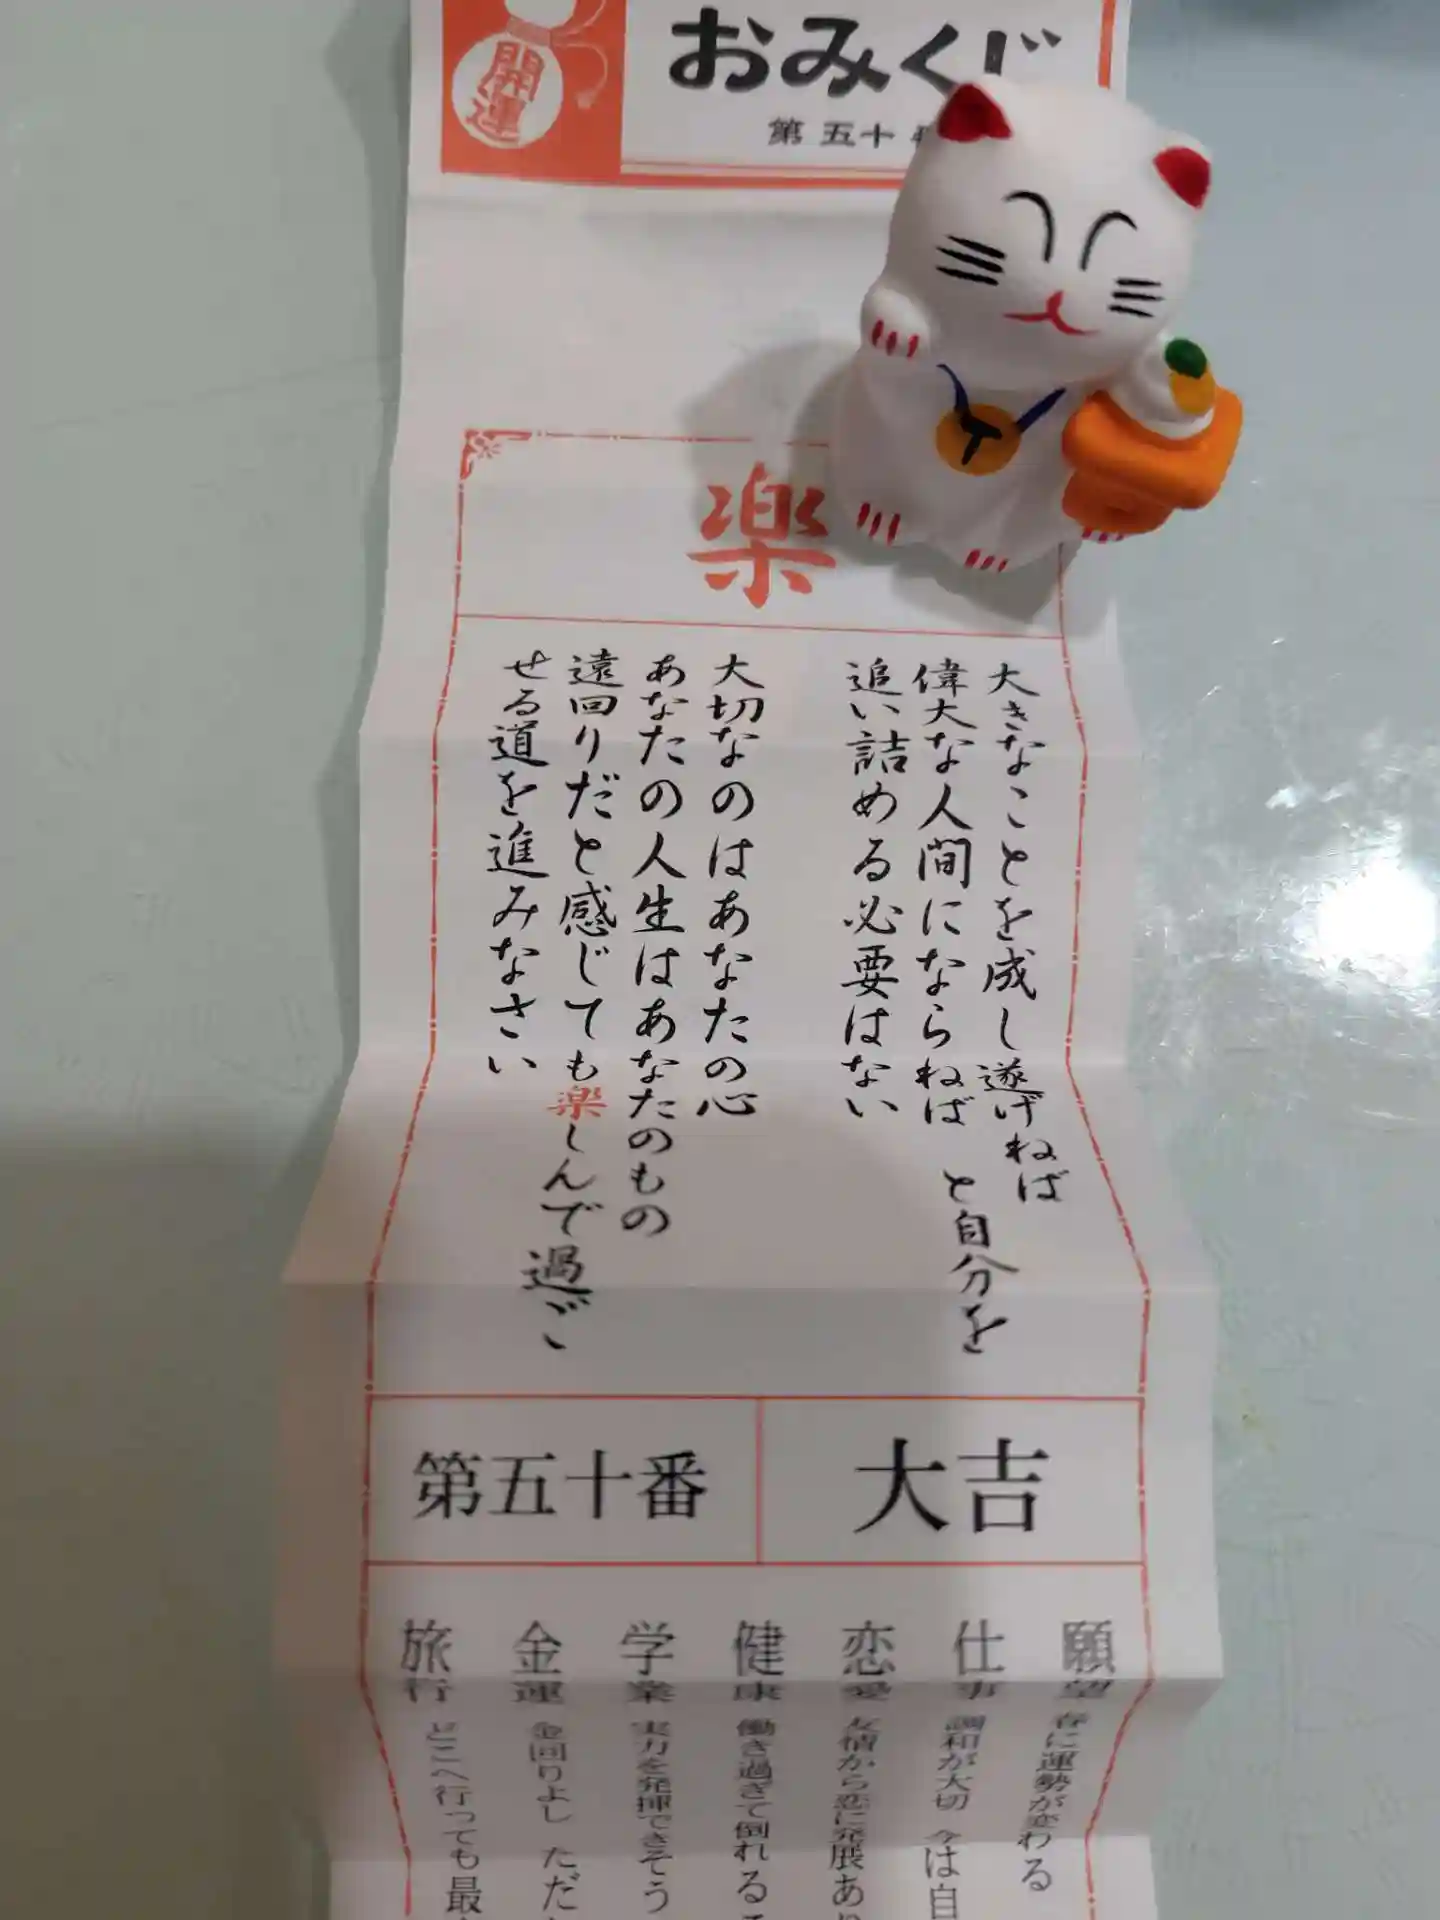 開運
おみくじ
第五十
楽
大きなことを成し遂げねば
偉大な人間にならねば と自分を
追い詰める必要はない
大切なのはあなたの心
あなたの人生はあなたのもの
遠回りだと感じても楽しんで過ご
せる道を進みなさい
大吉
第五十番
願望 春に運勢が変わる
仕事 調和が大切 今は自
恋愛 友情から恋に発展あり
健康 働き過ぎて倒れる
学業 実力を発揮できそう
金運 金回りよし ただ
旅行 どこへ行っても最